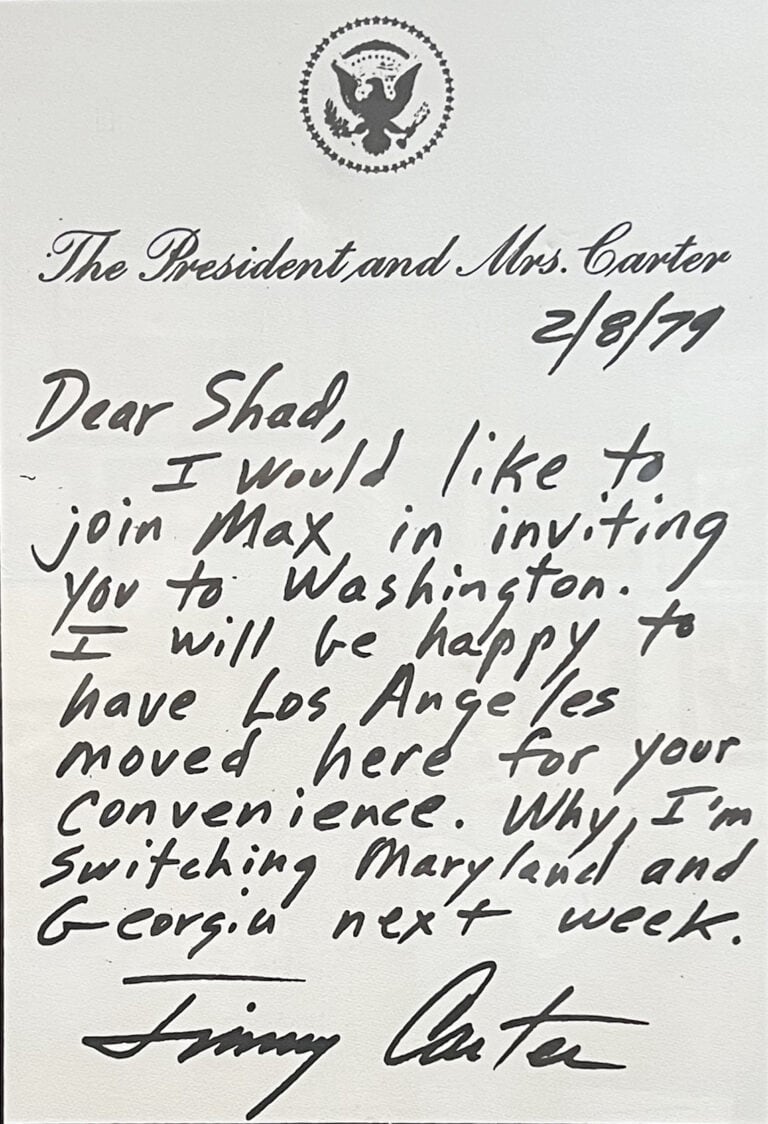 The President and Mrs. Carter
2/8/79
Dear Shad,
I would like to
join Max in inviting
you to Washington.
I will be happy to
have Los Angeles
moved here for your
convenience. Why, I'm
switching Maryland and
Georgia next week.
Jimmy Carter